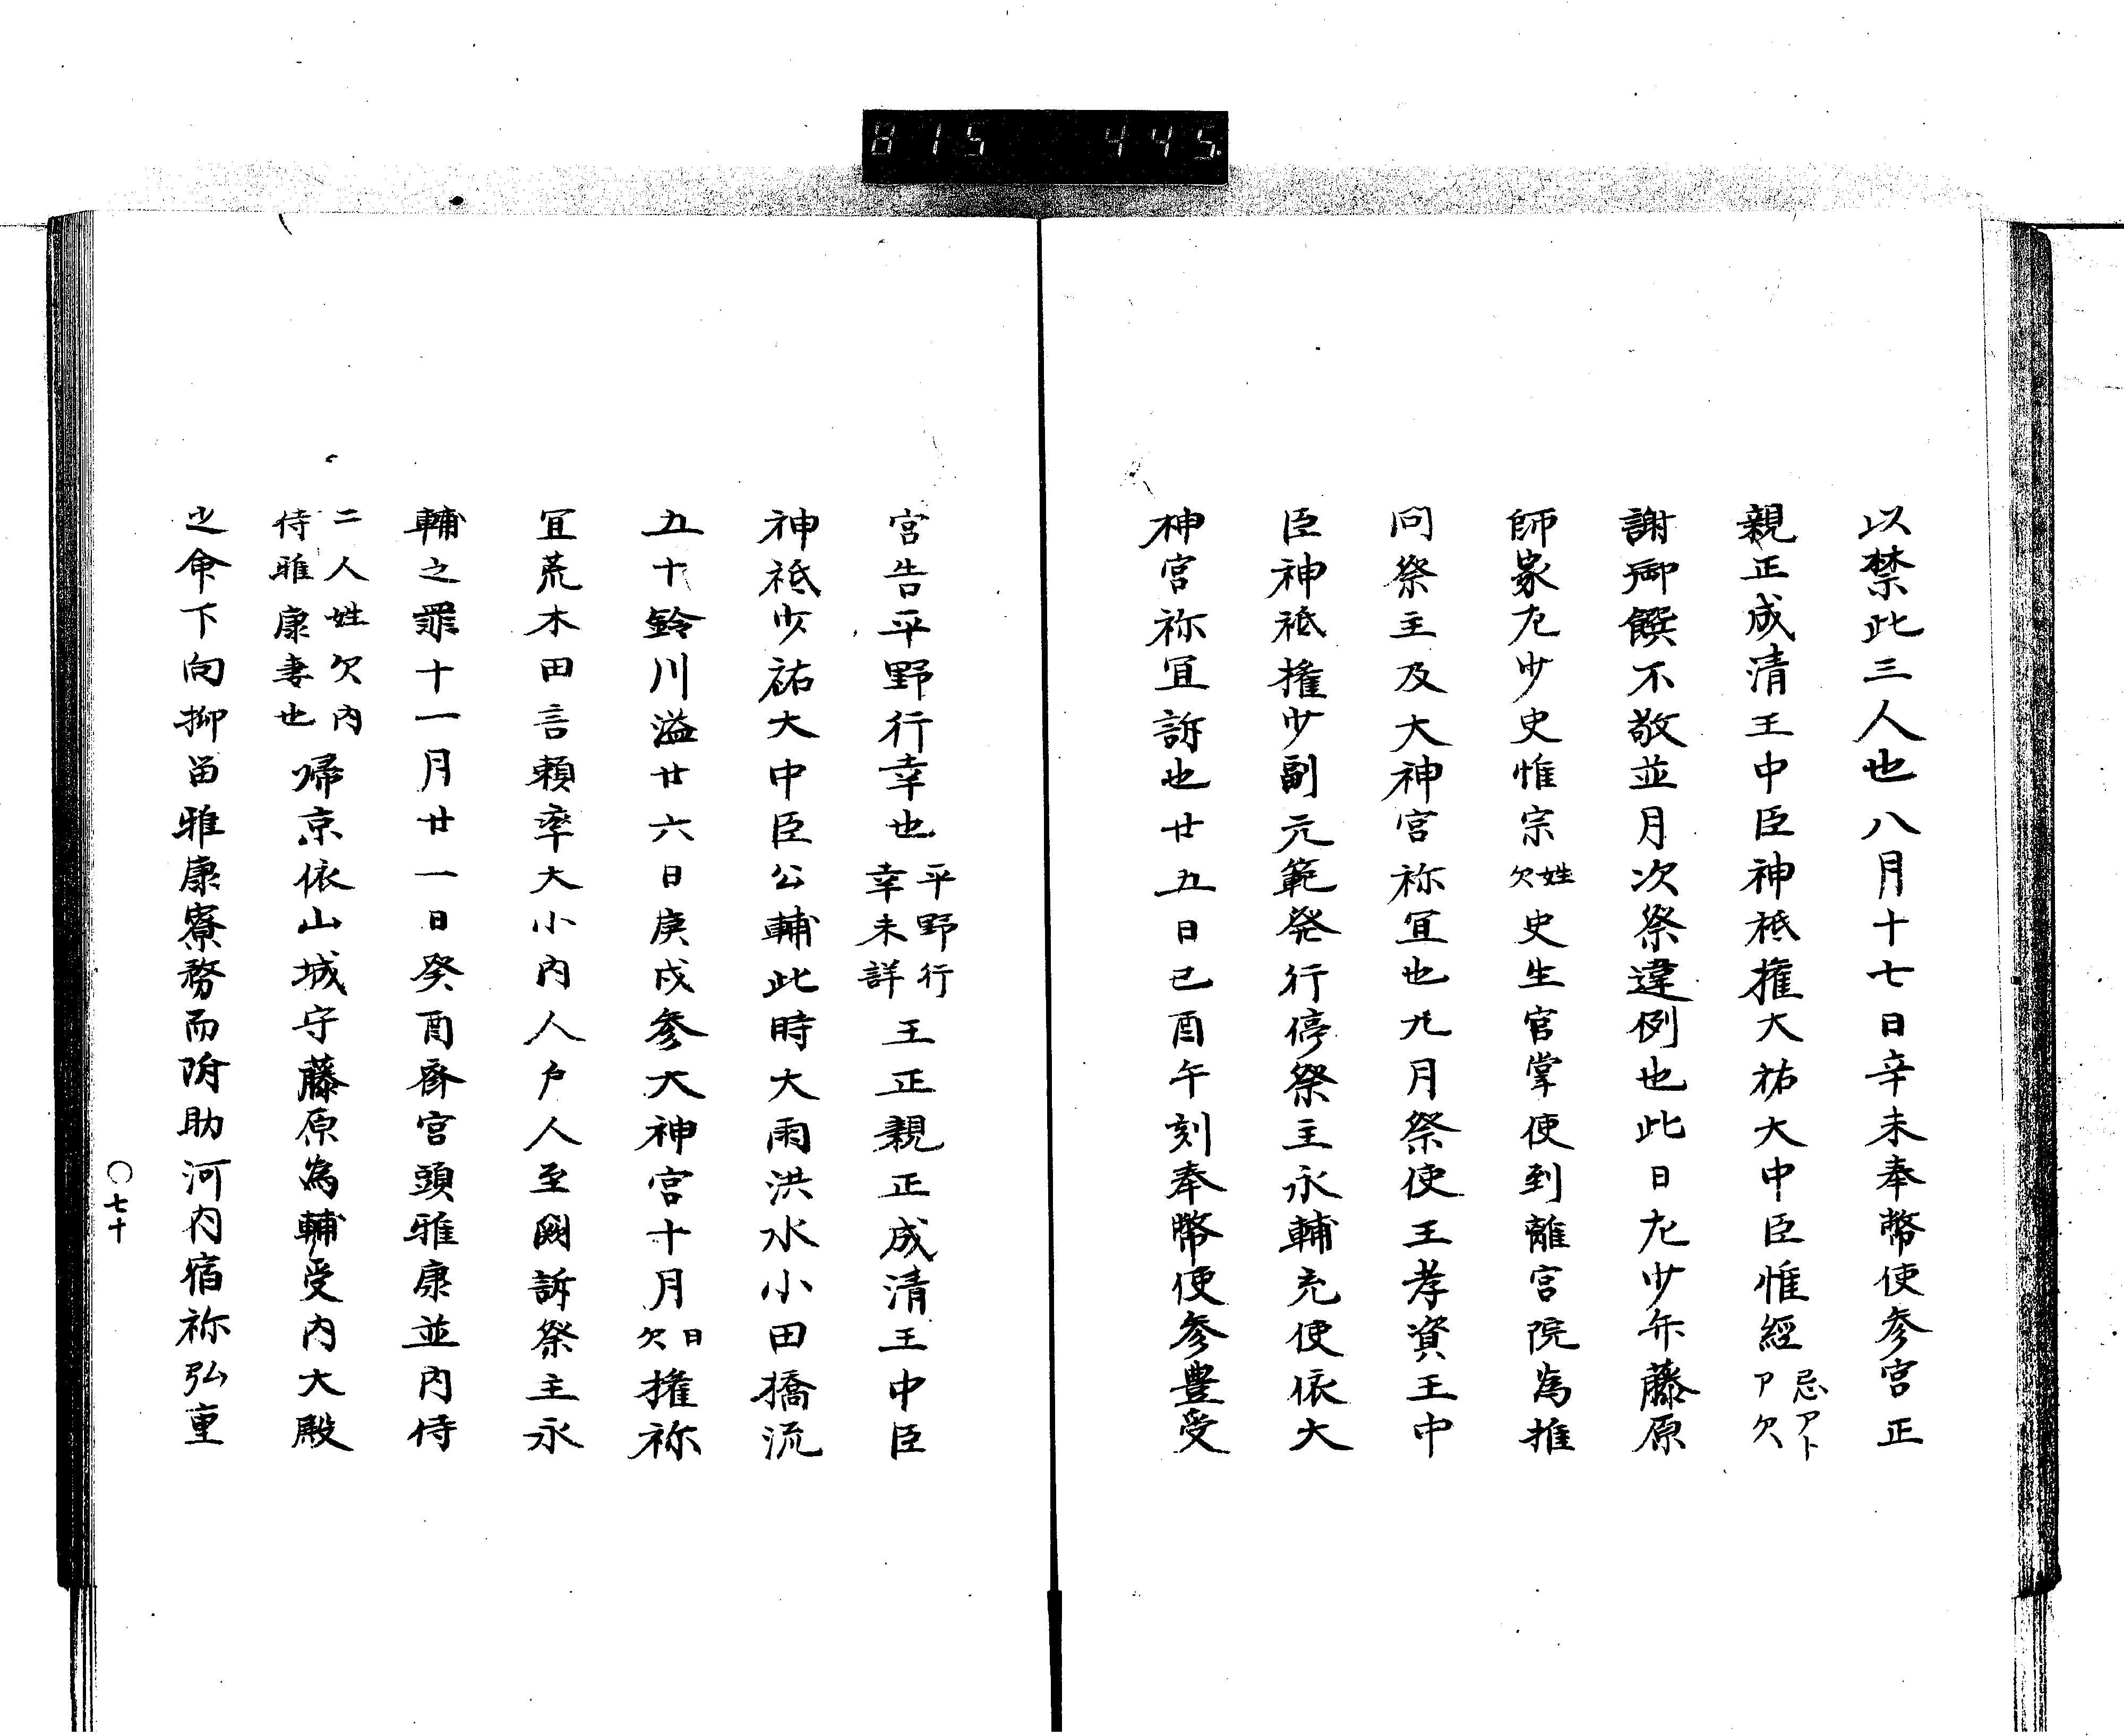 815 445.
以禁此三人也八月十七日辛未奉幣使参宮正
親正成清王中臣神祇権大祐大中臣惟経忌アト
ア欠
謝御饌不敬並月次祭違例也此日左少弁藤原
師家左少史惟宗姓
欠史生官掌使到離宮院為推
問祭主及大神宮祢宜也九月祭使王孝資王中
臣神祇権少副元範発行停祭主永輔充使依大
神宮祢宜訴也廿五日己酉午刻奉幣使参豊受
宮告平野行幸也平野行
幸未詳王正親正成清王中臣
神祇少祐大中臣公輔此時大雨洪水小田橋流
五十鈴川溢廿六日庚戌参大神宮十月日
欠権祢
宜荒木田言頼率大小内人戸人至闕訴祭主永
輔之罪十一月廿一日癸酉斎宮頭雅康並内侍
二人姓欠内
侍雅康妻也帰京依山城守藤原為輔受内大殿
之命下向抑留雅康寮務而附助河内宿祢弘重
〇七十